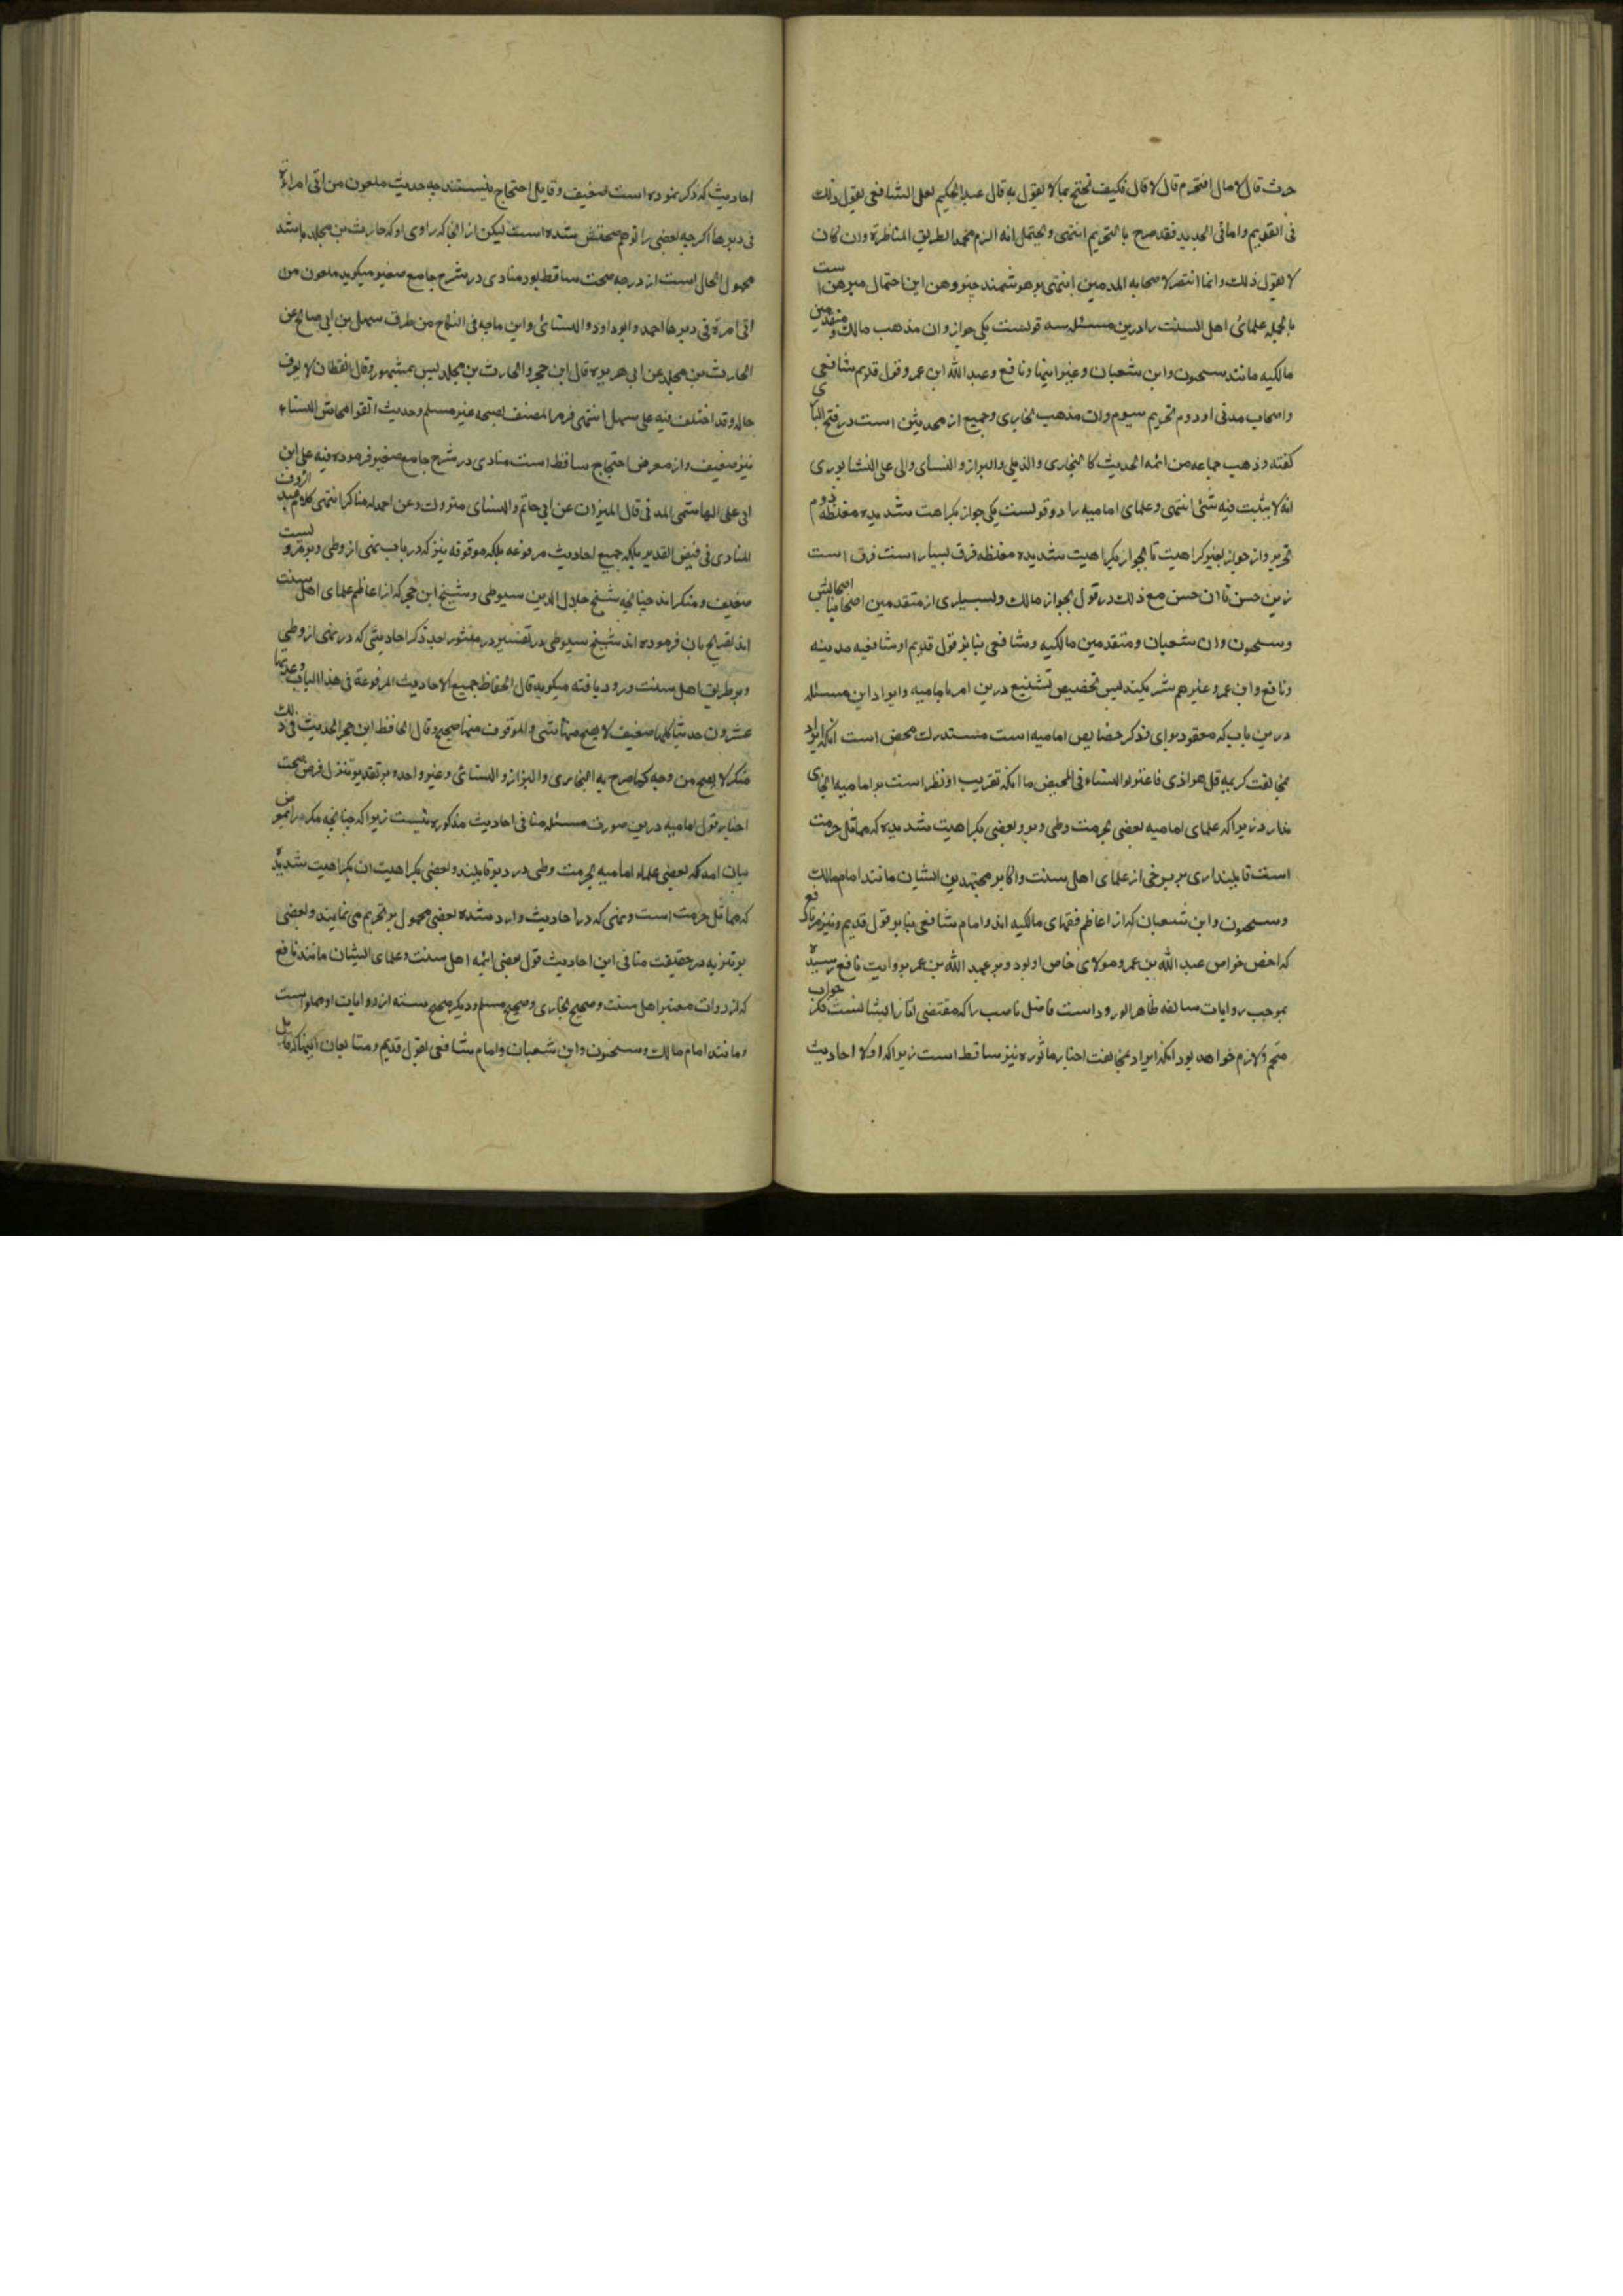 حرث قال لا مال افتحرم قال لا قال فكيف تحتج بما لا يقول به قال عبد الحكيم لعل الشافعي يقول ذلك
في القديم واما في الجديد فقد صرح بالتحريم انتهى ويحتمل انه الزم محمدا لطريق المناظرة وان كان
لا يقول ذلك وانما انتصر لاصحابه المدمين انتهى بر هوشمند خبير وهن اين احتمال مبرهن است
بالجمله علمای اهل السنت را درين مسئله سه قولست يكی جواز وان مذهب مالك و متقدمين
مالكيه مانند سحنون وابن شعبان وغيرايشا ونافع وعبد الله ابن عمر وقول قديم شافعی
واصحاب مدنی او دوم تحريم سيوم وان مذهب بخاری وجميع از محدثين است در فتح الباری
كفته وذهب جماعه من ائمه الحديث كالبخاری والذهلی والبزاز والنسای والی علی النشابوری
انه لا يثبت فيه شئ انتهى وعلمای اماميه را دو قولست يكی جواز بكراهت شديده مغلظه دوم
تحريم واز جواز بغير كراهيت تا بجواز بكراهيت شديده مغلظه فرق بسيار است فرق است
زين حسن تا ان حسن مع ذلك در قول بجواز مالك وبسياری از متقدمين اصحابش
وسحنون وابن شعبان ومتقدمين مالكيه وشافعی بنابر قول قديم او شافعيه مدينه
ونافع وابن عمر وغيرهم شريكند پس تخصيص تشنيع درين امر باماميه وايراد اين مسئله
درين باب كه معقود برای ذكر خصايص اماميه است مستدرك محض است انكه ايراد
بمخالفت كريمه قل هو اذی فاعتزلوا النساء في المحيض ما انكه تقريب او نظر است بر اماميه اتجاهی
ندارد زيرا كه علمای اماميه بعضی بحرمت وطی دبر وبعضی بكراهيت شديده كه مماثل حرمت
است قايلند اری بر برخی از علمای اهل سنت واكابر مجتهدين ايشان مانند امام مالك
وسحنون وابن شعبان كه از اعاظم فقهای مالكيه اند وامام شافعی بنابر قول قديم ونيز بر نافع
كه اخص خواص عبد الله بن عمر ومولای خاص او بود وبر عبد الله بن عمر بروايت نافع رسيده
بموجب روايات سابقه ظاهر الورود است فاضل ناصب را كه مقتضی اثار ايشانست فكر جواب
متحتم ولازم خواهد بود انكه ايراد بمخالفت اخبار ماثوره نيز ساقط است زيرا كه اولا احاديث
احاديث كه ذكر نموده است ضعيف وقابل احتجاج نيستند چه حديث ملعون من اتی امراة
في دبرها اكرچه بعضی را توهم صحتش شده است ليكن از انجا كه راوی او كه حارث بن مجلد باشد
مجهول الحال است از درجه صحت ساقط بود مناوی در شرح جامع صغير ميكويد ملعون من
اتی امرة في دبرها احمد وابو داود والنسائی وابن ماجه في النكاح من طرف سهيل بن ابي صالح عن
الحارث بن مجلد عن ابي هريره قال ابن حجر والحارث بن مجلد ليس بمشهور وقال القطان لا يعرف
حاله وقد اختلف فيه علی سهيل انتهى فرمز المصنف لصحه غير مسلم وحديث اتقوا محاش النساء
نيز ضعيف واز معرض احتجاج ساقط است مناوی در شرح جامع صغير فرموده فيه علی ابن
ابي علی الهاشمی المدنی قال الميزان عن ابي حاتم والنسای متروك وعن احمد له مناكر انتهى كلام عبد الروف
المناوی في فيض القدير بلكه جميع احاديث مرفوعه بلكه موقوفه نيز كه در باب نهی از وطی دبر مرويست
ضعيف ومنكر اند چنانچه شيخ جلال الدين سيوطی وشيخ ابن حجر كه از اعاظم علمای اهل سنت
اند تصريح بان فرموده اند شيخ سيوطی در تفسير در منثور بعد ذكر احاديثی كه در نهی از وطی
وبر طريق اهل سنت ورود يافته ميكويد قال الحفاظ جميع الاحاديث المرفوعة في هذا الباب وعدتها
عشرون حديثا كلها ضعيف لا يصح منها شئ والموقوف منها صحيح وقال الحافظ ابن حجر الحديث في ذلك
منكر لا يصح من وجه كما صرح به البخاری والبزاز والنسائی وغير واحد وبر تقدير تنزل فرض صحت
اخبار قول اماميه درين صورت مسئله منافی احاديث مذكوره نيست زيرا كه چنانچه مكررا بمعرض
بيان امد كه بعضی علماء اماميه بحرمت وطی در دبر قايلند وبعضی بكراهيت ان بكراهيت شديده
كه مماثل حرمت است ونهی كه در احاديث وارد شده بعضی محمول بر تحريم می نمايند وبعضی
بر تنزيه در حقيقت منافی اين احاديث قول بعضی ائمه اهل سنت وعلمای ايشان مانند نافع
كه از روات معتبر اهل سنت وصحيح بخاری وصحيح مسلم وديكر صحيح سته از روايات او مملو است
ومانند امام مالك وسحنون وابن شعبان وامام شافعی بقول قديم ومتابعان اينها كه قايل